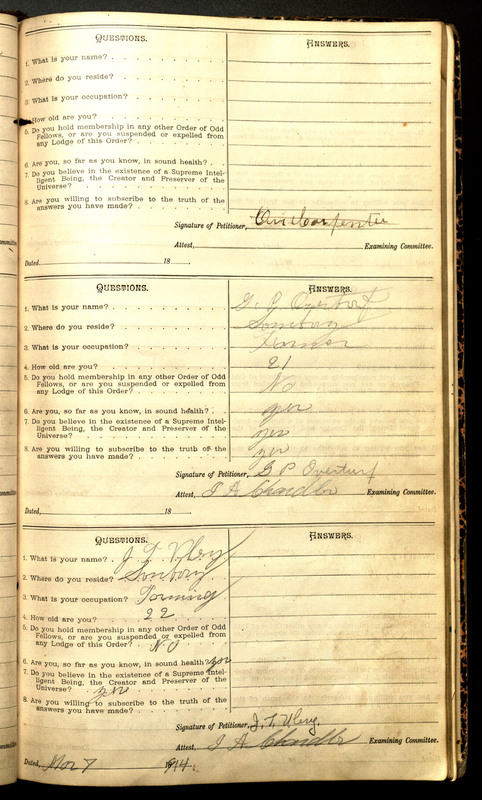 QUESTIONS.
ANSWERS.
1. What is your name?
2. Where do you reside?
3. What is your occupation?
4. How old are you?
5. Do you hold membership in any other Order of Odd
Fellows, or are you suspended or expelled from
any Lodge of this Order?
6. Are you, so far as you know, in sound health?
7. Do you believe in the existence of a Supreme Intel-
ligent Being, the Creator and Preserver of the
Universe?
8. Are you willing to subscribe to the truth of the
answers you have made?
Signature of Petitioner, Carpenter
Attest, Examining Committee.
Dated, 18
QUESTIONS.
ANSWERS.
1. What is your name? G. P. Overturf
2. Where do you reside? Sunbury
3. What is your occupation? Farmer
4. How old are you? 21
5. Do you hold membership in any other Order of Odd
Fellows, or are you suspended or expelled from
any Lodge of this Order? No
6. Are you, so far as you know, in sound health? yes
7. Do you believe in the existence of a Supreme Intel-
ligent Being, the Creator and Preserver of the
Universe? yes
8. Are you willing to subscribe to the truth of the
answers you have made? yes
Signature of Petitioner, G P Overturf
Attest, I A Chandler Examining Committee.
Dated, 18
QUESTIONS.
ANSWERS.
1. What is your name? J. T.
2. Where do you reside? Sunbury
3. What is your occupation? Farming
4. How old are you? 22
5. Do you hold membership in any other Order of Odd
Fellows, or are you suspended or expelled from
any Lodge of this Order? NO
6. Are you, so far as you know, in sound health? yes
7. Do you believe in the existence of a Supreme Intel-
ligent Being, the Creator and Preserver of the
Universe? yes
8. Are you willing to subscribe to the truth of the
answers you have made?
Signature of Petitioner, J. T.
Attest, I A Chandler Examining Committee.
Dated, Mar 7 1914.